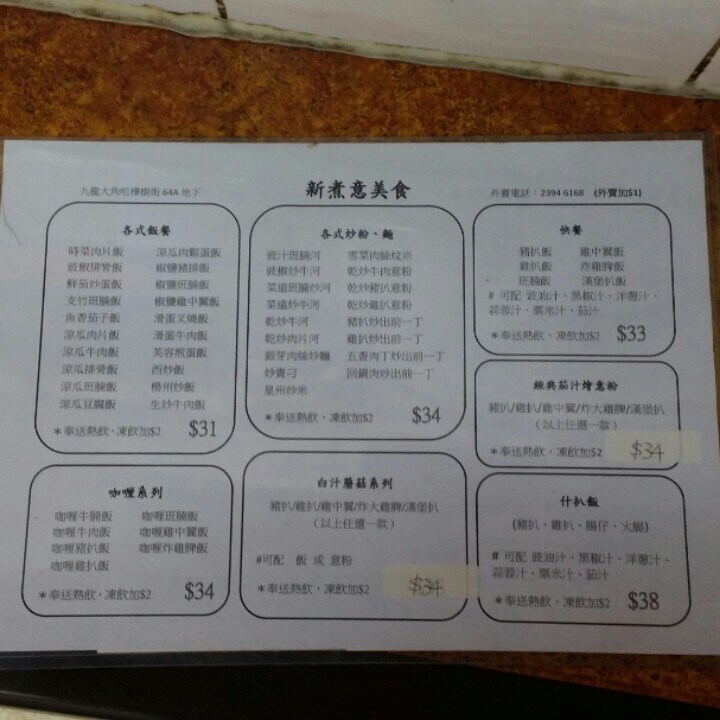 九龍大角咀櫻樹街 64A 地下
新煮意美食
外賣電話：2394 6168 (外賣加$1)
各式飯餐
時菜肉片飯 涼瓜肉鬆蛋飯
豉椒排骨飯 椒鹽豬排飯
鮮茄炒蛋飯 椒鹽班腩飯
支竹班腩飯 椒鹽雞中翼飯
魚香茄子飯 滑蛋叉燒飯
涼瓜肉片飯 滑蛋牛肉飯
涼瓜牛肉飯 芙蓉煎蛋飯
涼瓜排骨飯 西炒飯
涼瓜班腩飯 楊州炒飯
涼瓜豆腐飯 生炒牛肉飯
＊奉送熱飲，凍飲加$2 $31
各式炒粉、麵
豉汁班腩河 雪菜肉絲炆米
豉椒炒牛河 乾炒牛肉意粉
菜遠班腩炒河 乾炒豬扒意粉
菜遠炒牛河 乾炒雞扒意粉
乾炒牛河 豬扒炒出前一丁
乾炒肉片河 雞扒炒出前一丁
銀芽肉絲炒麵 五香肉丁炒出前一丁
炒貴刁 回鍋肉炒出前一丁
星州炒米
＊奉送熱飲，凍飲加$2 $34
快餐
豬扒飯 雞中翼飯
雞扒飯 炸雞脾飯
班腩飯 漢堡扒飯
# 可配 豉油汁、黑椒汁、洋蔥汁、
蒜蓉汁、粟米汁、茄汁
＊奉送熱飲，凍飲加$2 $33
經典茄汁燴意粉
豬扒/雞扒/雞中翼/炸大雞脾/漢堡扒
（以上任選一款）
＊奉送熱飲，凍飲加$2 $34
咖喱系列
咖喱牛腩飯 咖喱班腩飯
咖喱牛肉飯 咖喱雞中翼飯
咖喱豬扒飯 咖喱炸雞脾飯
咖喱雞扒飯
＊奉送熱飲，凍飲加$2 $34
白汁蘑菇系列
豬扒/雞扒/雞中翼/炸大雞脾/漢堡扒
（以上任選一款）
#可配 飯 或 意粉
＊奉送熱飲，凍飲加$2 $34
什扒飯
（豬扒、雞扒、腸仔、火腿）
# 可配 豉油汁、黑椒汁、洋蔥汁、
蒜蓉汁、粟米汁、茄汁
＊奉送熱飲，凍飲加$2 $38